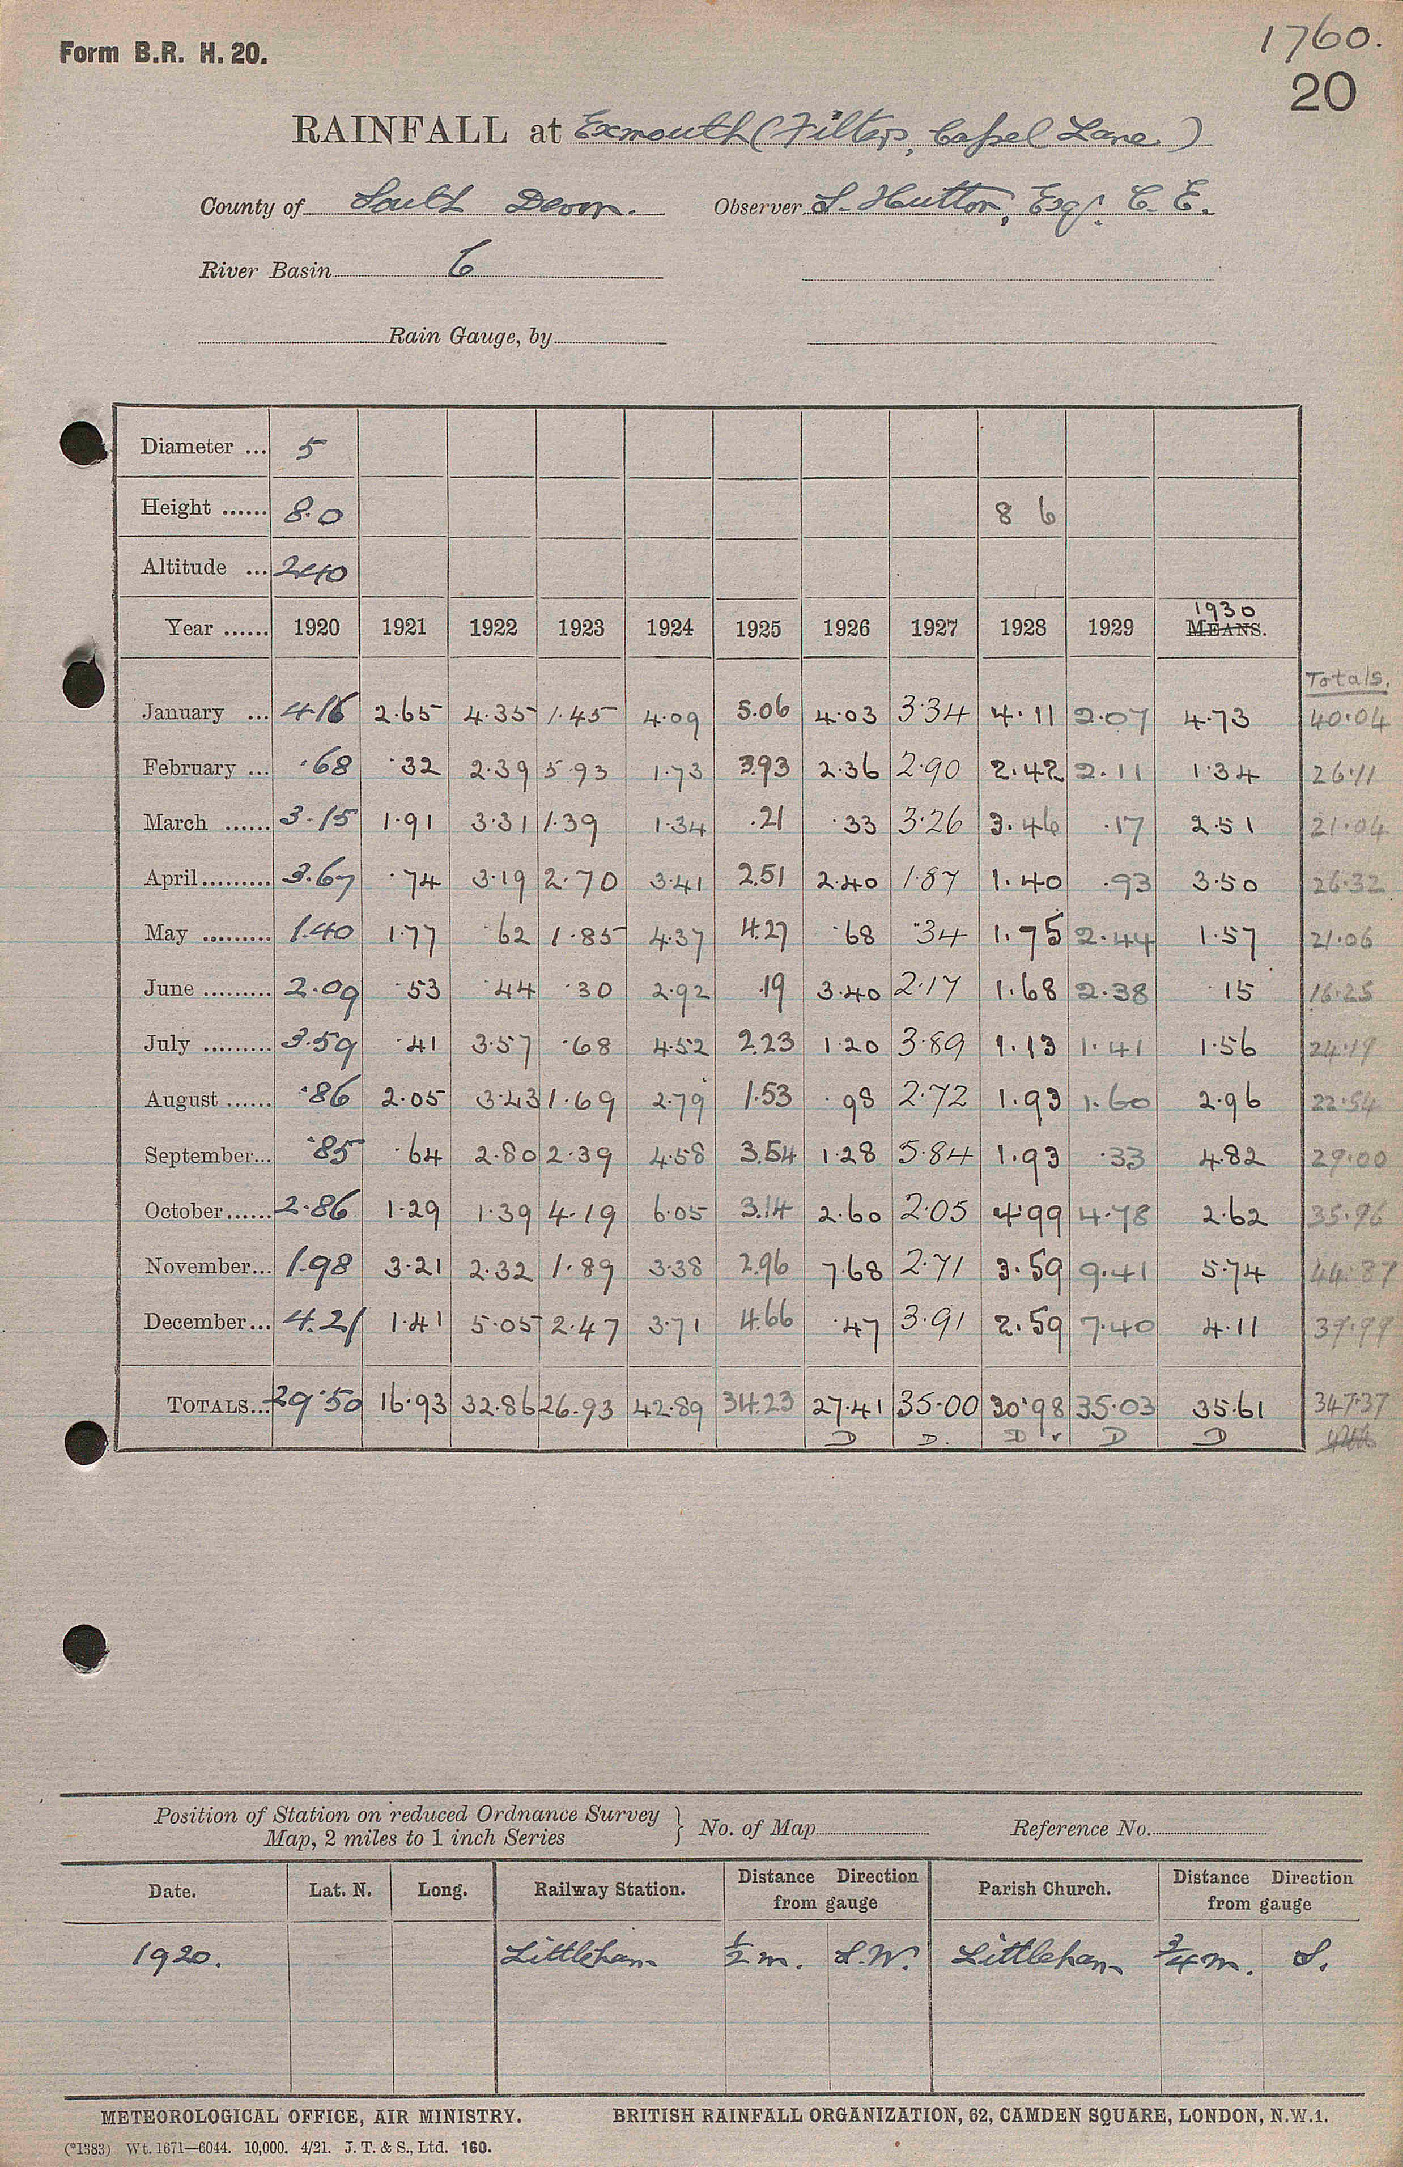 Form B.R. H. 20.
1760.
20
RAINFALL at Exmouth (Filters, Capel Lane.)
County of South Devon. Observer S. Hutton, Esq. C. E.
River Basin 6
Rain Gauge, by
Diameter ... 5
Height ...... 8.0 8 6
Altitude ... 240
Year ...... 1920 1921 1922 1923 1924 1925 1926 1927 1928 1929 1930 MEANS.
Totals.
January ... 4.16 2.65 4.35 1.45 4.09 5.06 4.03 3.34 4.11 2.07 4.73 40.04
February ... .68 .32 2.39 5.93 1.73 3.93 2.36 2.90 2.42 2.11 1.34 26.11
March ...... 3.15 1.91 3.31 1.39 1.34 .21 .33 3.26 3.46 .17 2.51 21.04
April ......... 3.67 .74 3.19 2.70 3.41 2.51 2.40 1.87 1.40 .93 3.50 26.32
May ......... 1.40 1.77 .62 1.85 4.37 4.27 .68 .34 1.75 2.44 1.57 21.06
June ......... 2.09 .53 .44 .30 2.92 .19 3.40 2.17 1.68 2.38 .15 16.25
July ......... 3.59 .41 3.57 .68 4.52 2.23 1.20 3.89 1.13 1.41 1.56 24.19
August ...... .86 2.05 3.43 1.69 2.79 1.53 .98 2.72 1.93 1.60 2.96 22.54
September... .85 .64 2.80 2.39 4.58 3.54 1.28 5.84 1.93 .33 4.82 29.00
October...... 2.86 1.29 1.39 4.19 6.05 3.14 2.60 2.05 4.99 4.78 2.62 35.96
November... 1.98 3.21 2.32 1.89 3.38 2.96 7.68 2.71 3.59 9.41 5.74 44.87
December... 4.21 1.41 5.05 2.47 3.71 4.66 .47 3.91 2.59 7.40 4.11 39.99
TOTALS... 29.50 16.93 32.86 26.93 42.89 34.23 27.41 35.00 30.98 35.03 35.61 347.37
D D. D D D
Position of Station on reduced Ordnance Survey
Map, 2 miles to 1 inch Series } No. of Map Reference No.
Date. Lat. N. Long. Railway Station. Distance Direction from gauge Parish Church. Distance Direction from gauge
1920. Littleham 1/2 m. S.W. Littleham 3/4 m. S.
METEOROLOGICAL OFFICE, AIR MINISTRY. BRITISH RAINFALL ORGANIZATION, 62, CAMDEN SQUARE, LONDON, N.W.1.
(*1383) Wt. 1671—6044. 10,000. 4/21. J. T. & S., Ltd. 160.